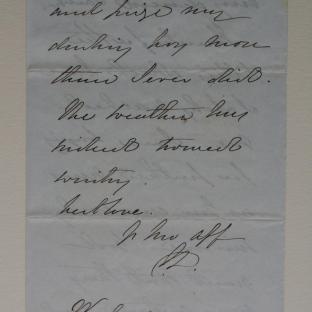 and prize my
darling boy more
than I ever did.
The weather has
indeed turned
wintry.
best love.
yr
aff